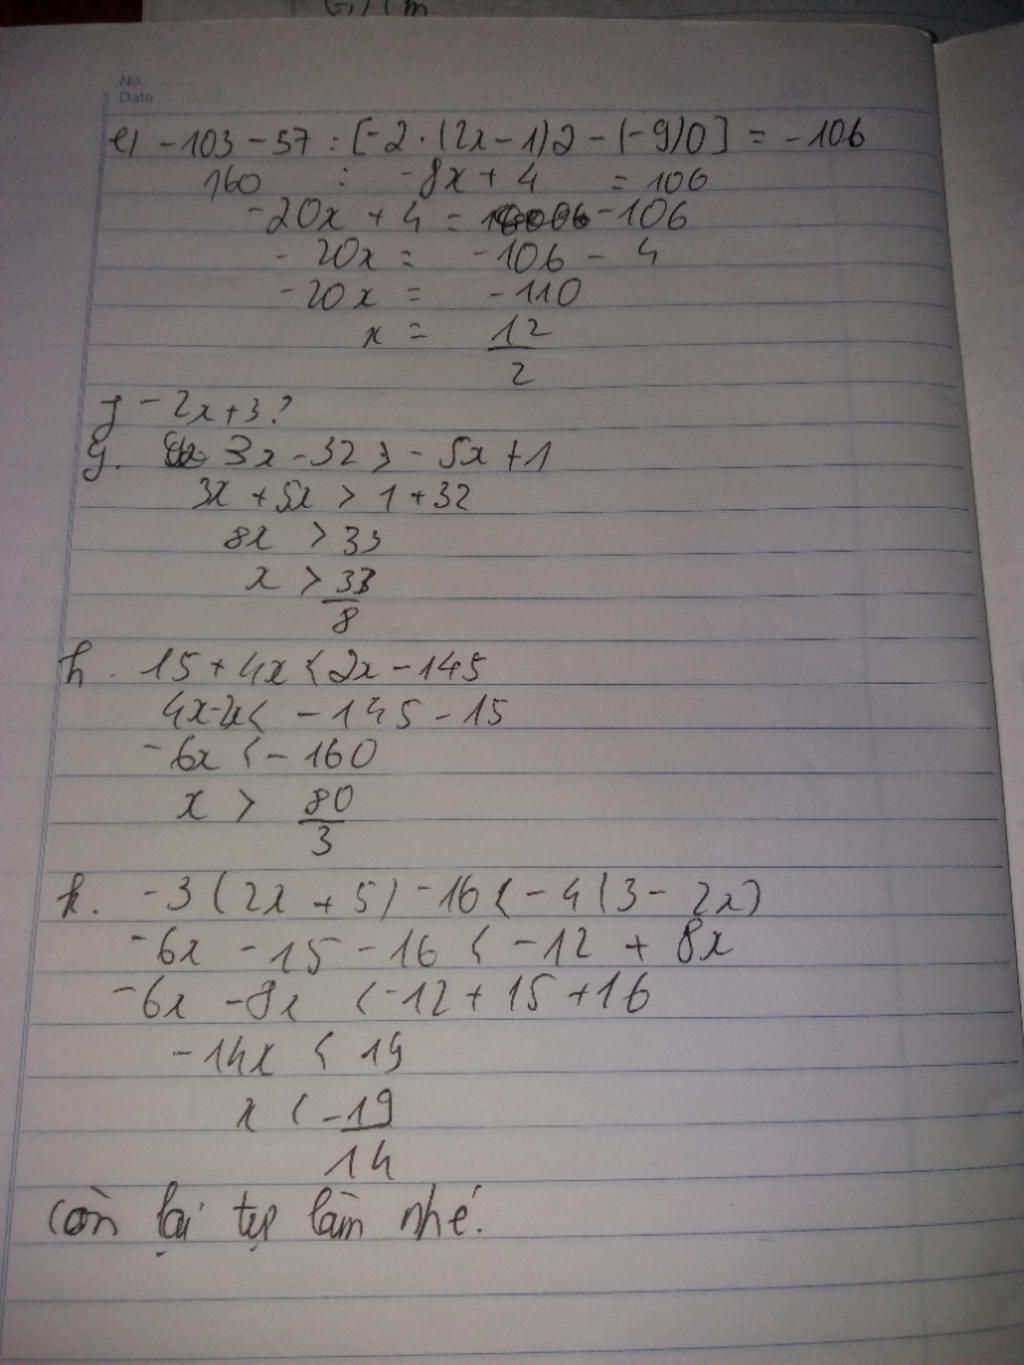 No.
Date
e) -103 - 57 : [-2 · (2x - 1)2 - (-9)0] = -106
160 : -8x + 4 = 106
-20x + 4 = -106
-20x = -106 - 4
-20x = -110
x = 12/2
f - 2x + 3?
g. 3x - 32 > - 5x + 1
3x + 5x > 1 + 32
8x > 33
x > 33/8
h. 15 + 4x < 2x - 145
4x - 2x < - 145 - 15
-6x < - 160
x > 80/3
k. -3(2x + 5) - 16 < -4(3 - 2x)
-6x - 15 - 16 < -12 + 8x
-6x - 8x < -12 + 15 + 16
-14x < 19
x < -19/14
còn lại tự làm nhé.